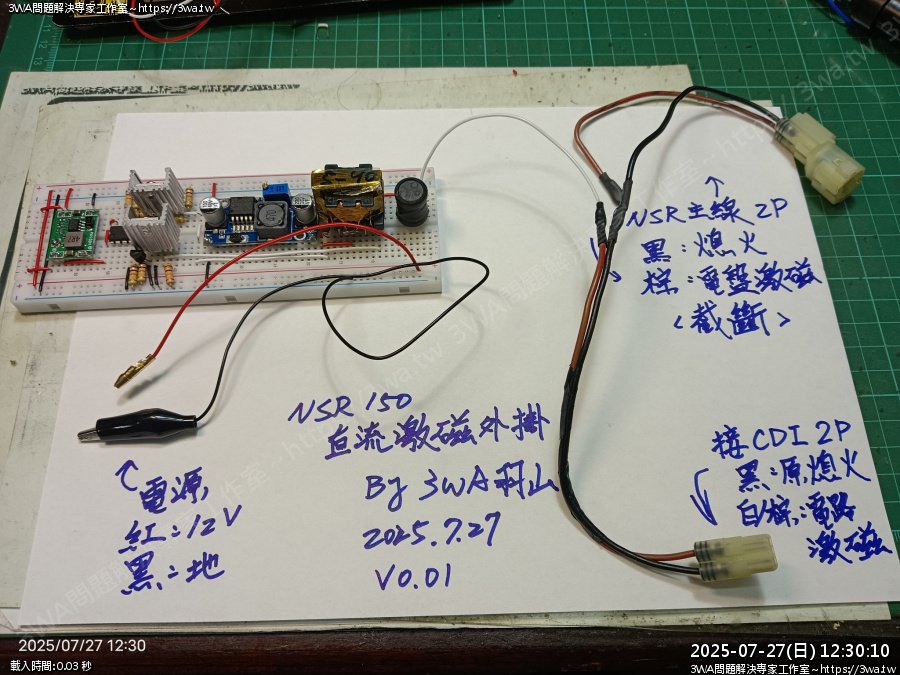 3WA問題解決專家工作室~https://3wa.tw
NSR主線 2P
黑:熄火
棕:電盤激磁
<截斷>
NSR 150
直流激磁外掛
By 3WA羽山
2025.7.27
V0.01
電源
紅:12V
黑:地
接CDI 2P
黑:原熄火
白/棕:電路
激磁
2025/07/27 12:30
載入時間:0.03 秒
2025-07-27(日) 12:30:10
3WA問題解決專家工作室~https://3wa.tw